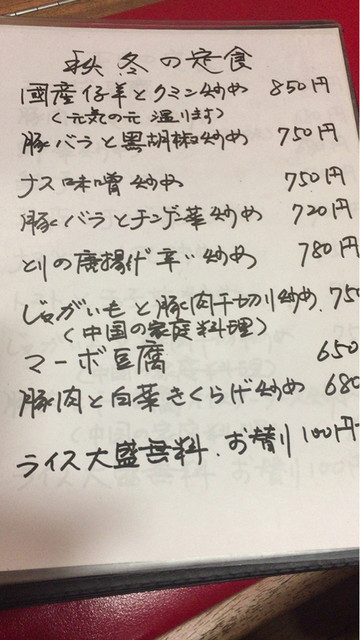 秋冬の定食
国産仔羊とクミン炒め 850円
(元気の元 温ります)
豚バラと黒胡椒炒め 750円
ナス味噌炒め 750円
豚バラとチンゲン菜炒め 720円
とりの唐揚げ辛い炒め 780円
じゃがいもと豚肉千切り炒め 75
(中国の家庭料理)
マーボ豆腐 650
豚肉と白菜きくらげ炒め 680
ライス大盛無料.お替り100円